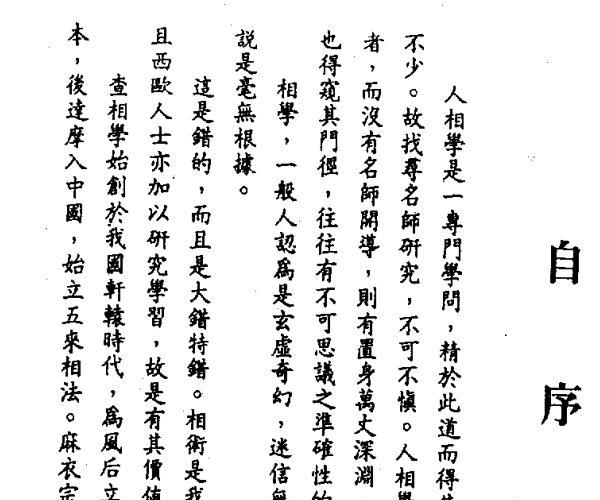 自序
人相學是一專門學問，精於此道而得
不少。故找尋名師研究，不可不愼。人相學
者，而沒有名師開導，則有置身萬丈深淵
也得窺其門徑，往往有不可思議之準確性的
相學，一般人認爲是玄虛奇幻，迷信無
說是毫無根據。
這是錯的，而且是大錯特錯。相術是我
且西歐人士亦加以研究學習，故是有其價値
查相學始創於我國軒轅時代，爲風后立
本，後達摩入中國，始立五來相法。麻衣宗